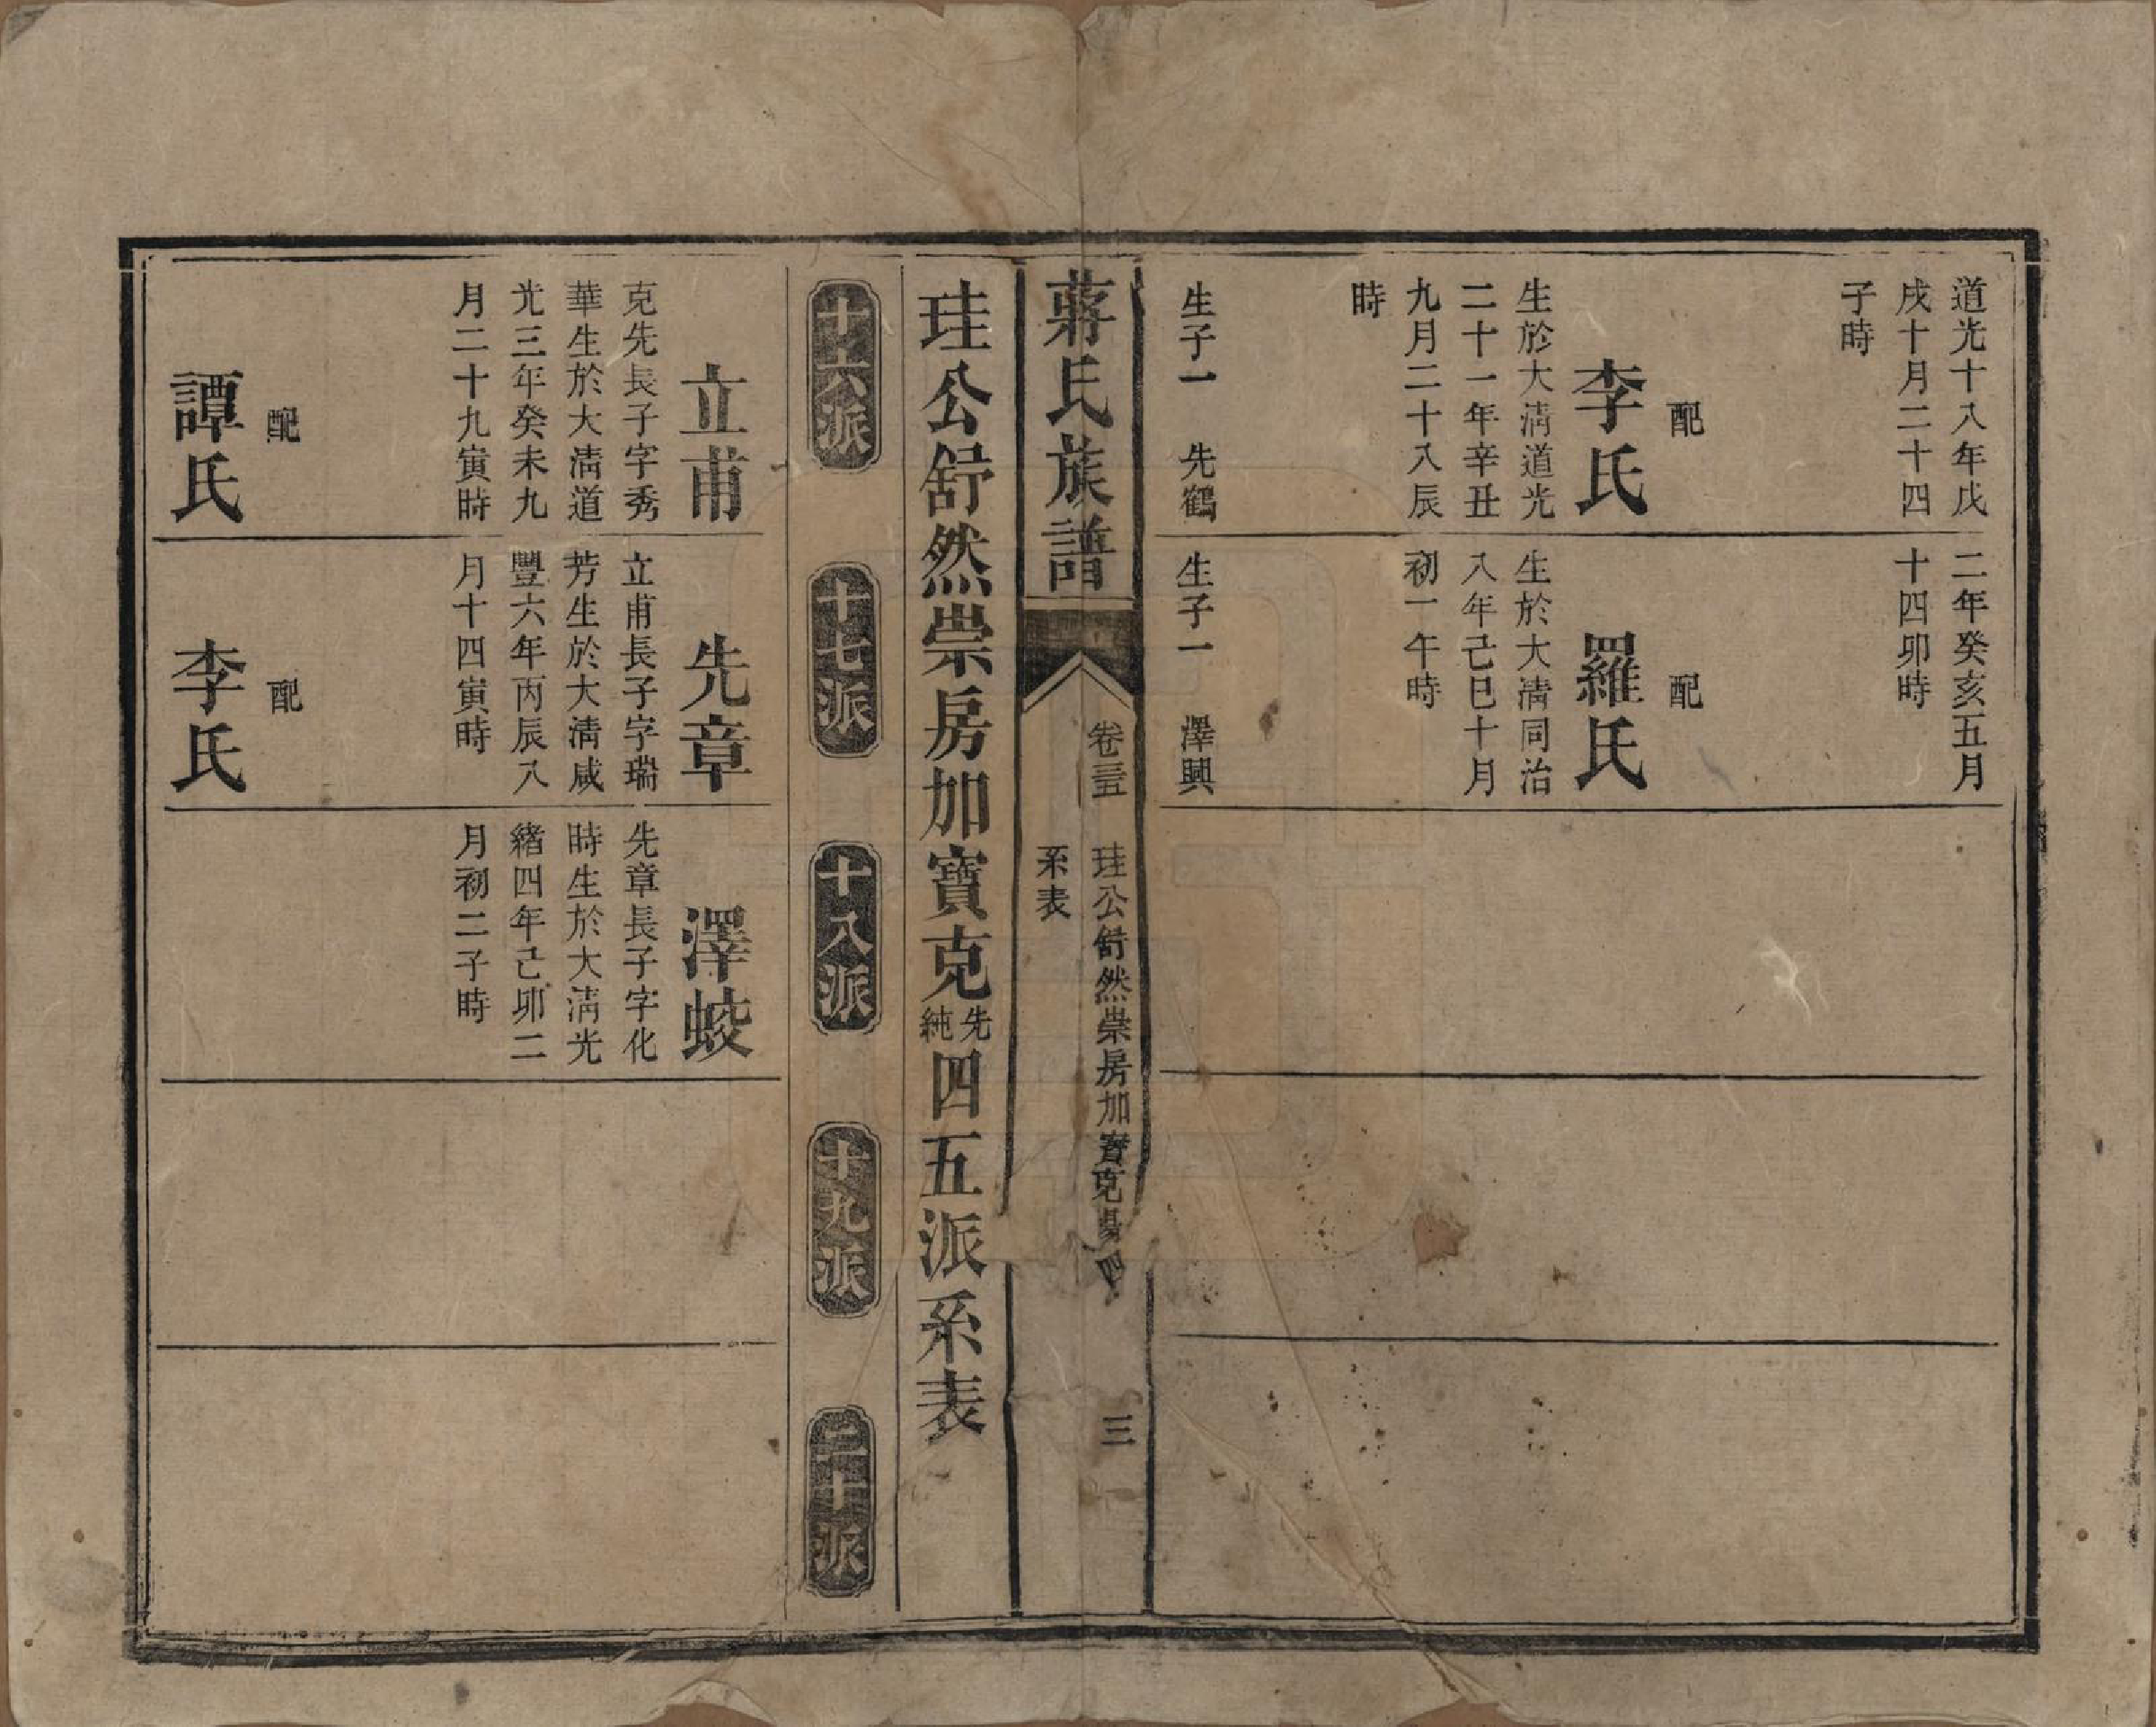 道光十八年戊
戌十月二十四
子時
配
李氏
生於大淸道光
二十一年辛丑
九月二十八辰
時
生子一　先鶴
二年癸亥五月
十四卯時
配
羅氏
生於大淸同治
八年己巳十月
初一午時
生子一　澤興
蔣氏族譜
卷三五
珪公舒然崇房加寶克
系表
三
珪公舒然崇房加寶克先純四五派系表
十六派
十七派
十八派
十九派
二十派
立甫
克先長子字秀
華生於大淸道
光三年癸未九
月二十九寅時
配
譚氏
先章
立甫長子字瑞
芳生於大淸咸
豐六年丙辰八
月十四寅時
配
李氏
澤蛟
先章長子字化
時生於大淸光
緒四年己卯二
月初二子時